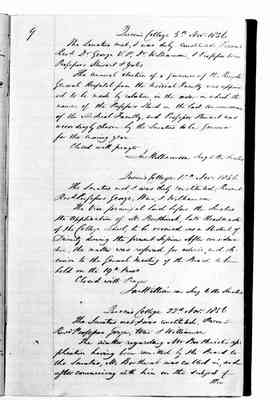 9
Queen's College 5th Nov. 1856
The Senatus met, & was duly constituted. Present
Revd Dr George V.P., Dr Williamson, & Professors
Stewart & Yates
The annual election of a governor of the
General Hospital from the Medical Faculty was
to be made by rotation in the order in which the
names of the Professors stand in the last
of the Medical Faculty, and Professor Stewart was
accordingly chosen by the Senatus to be governor
for the ensuing year
Closed with prayer
Ja Williamson Secy to the Senatus
Queen's College, Nov. 1856
The Senatus met & was duly constituted, Present
Revd Professors George, Weir, & Williamson
The Vice principal laid before the Senatus
the application of Mr
of the College School, to be received as a Student of
Divinity during the present Session. After
the matter was referred for advice, and
to the Meeting of the Board to be
held on the 19th Novr
Closed with Prayer
Ja Williamson Secy to the Senatus
Queen's College 22d Nov. 1856
The Senatus met & was constituted, Present
Revd Professors George, Weir & Williamson
The matter regarding Mr
application having been remitted by the Board to
the Senatus, Mr was called in, and
after conversing with him on the subject of